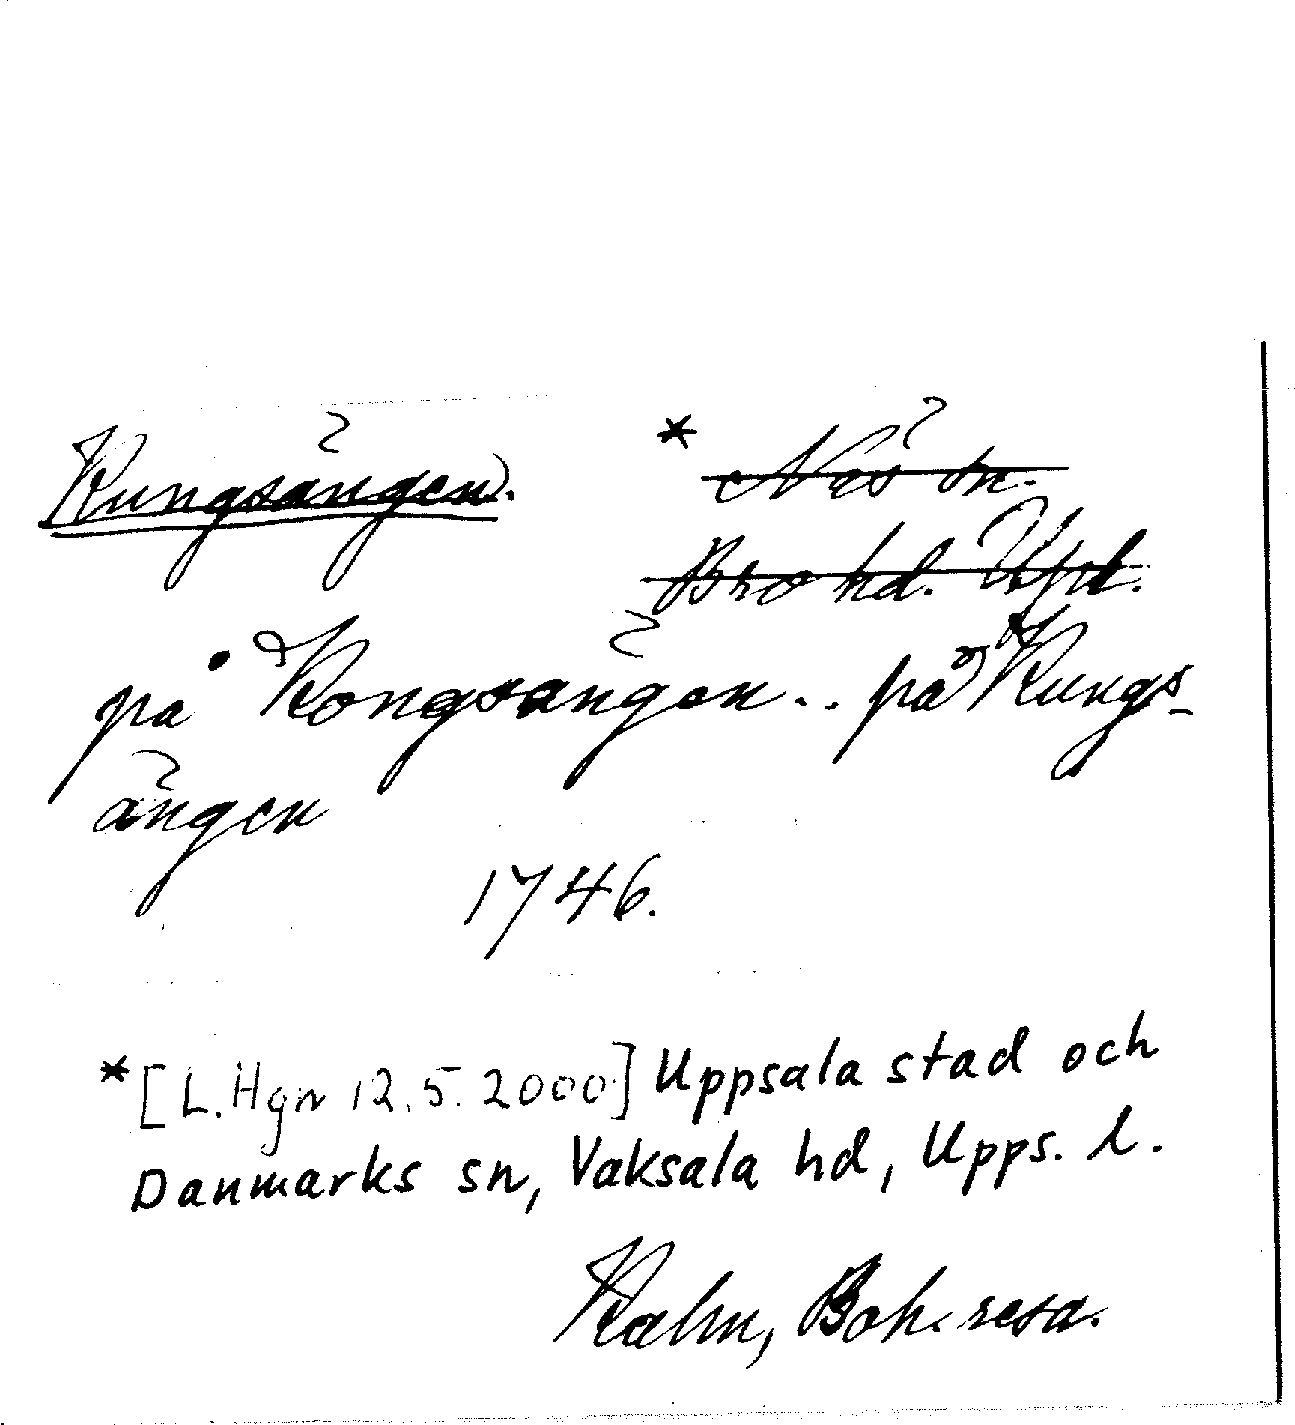 Kungsängen. * Näs sn.
Bro hd. Uppl.
på Kongsängen .. på Kungs-
ängen
1746.
* [L. Hgn 12.5.2000] Uppsala stad och
Danmarks sn, Vaksala hd, Upps. l.
Kalm, Boh. resa.